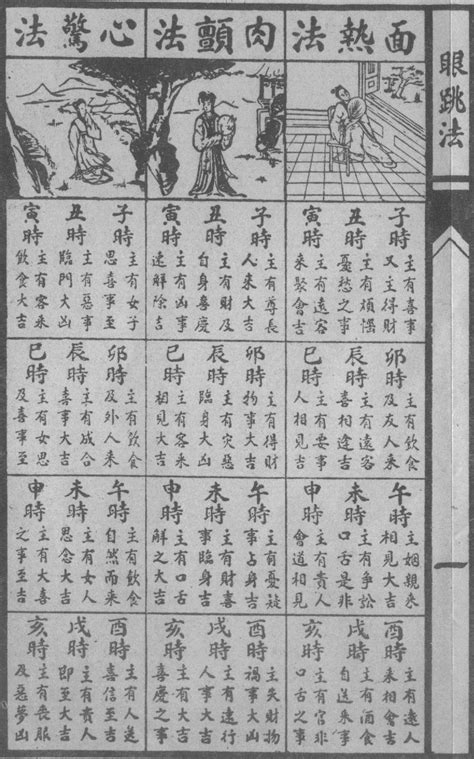 眼跳法
一
面熱法
子時
主有喜事
又主得財
丑時
主有煩惱
憂愁之事
寅時
主有遠客
來聚會吉
卯時
主有飲食
及友人來
辰時
主有遠客
喜相逢吉
巳時
主有要事
人相見吉
午時
主姻親來
相見大吉
未時
主有爭訟
口舌是非
申時
主有貴人
會道相見
酉時
主有遠人
來相會吉
戌時
主有酒食
自送來事
亥時
主有官非
口舌之事
肉顫法
子時
主有尊長
人來大吉
丑時
主有財及
自身喜慶
寅時
主有凶事
速解除吉
卯時
主有得財
物事大吉
辰時
主有災惡
臨身大凶
巳時
主有客來
相見大吉
午時
主有憂疑
事占身吉
未時
主有財喜
事臨身吉
申時
主有口舌
解之大吉
酉時
主失財物
禍事大凶
戌時
主有遠行
人事大吉
亥時
主有
喜慶之事
心驚法
子時
主有女子
思喜事至
丑時
主有惡事
臨門大凶
寅時
主有客來
飲食大吉
卯時
主有飲食
及外人來
辰時
主有成合
喜事大吉
巳時
主有女思
及喜事至
午時
主有飲食
自然而來
未時
主有女人
思念大吉
申時
主有大喜
之事至吉
酉時
主有人送
喜信至吉
戌時
主有貴人
即至大吉
亥時
主有喪服
及惡夢凶